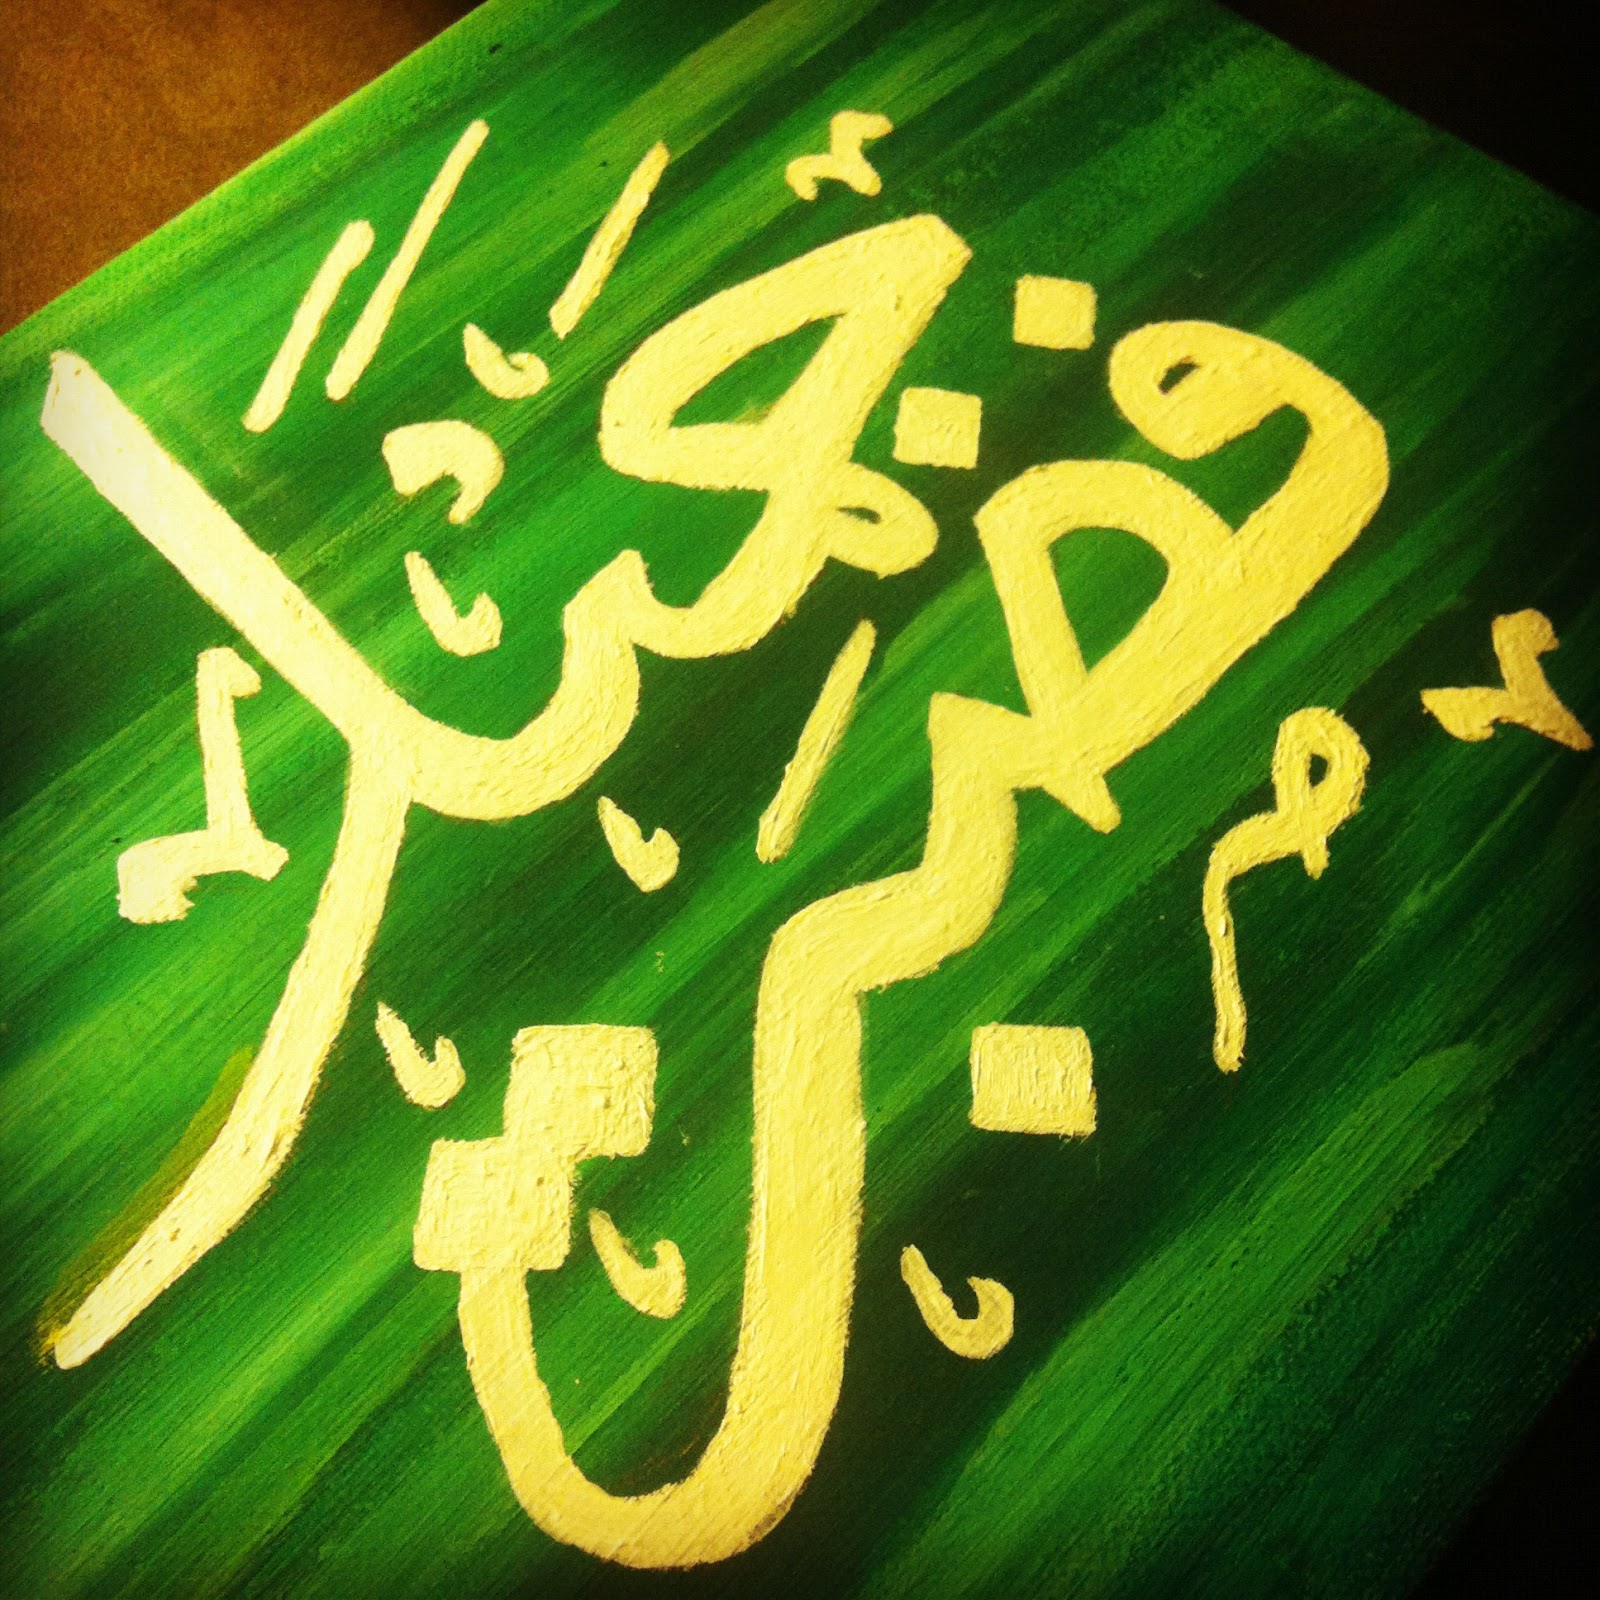 فصبر جميل